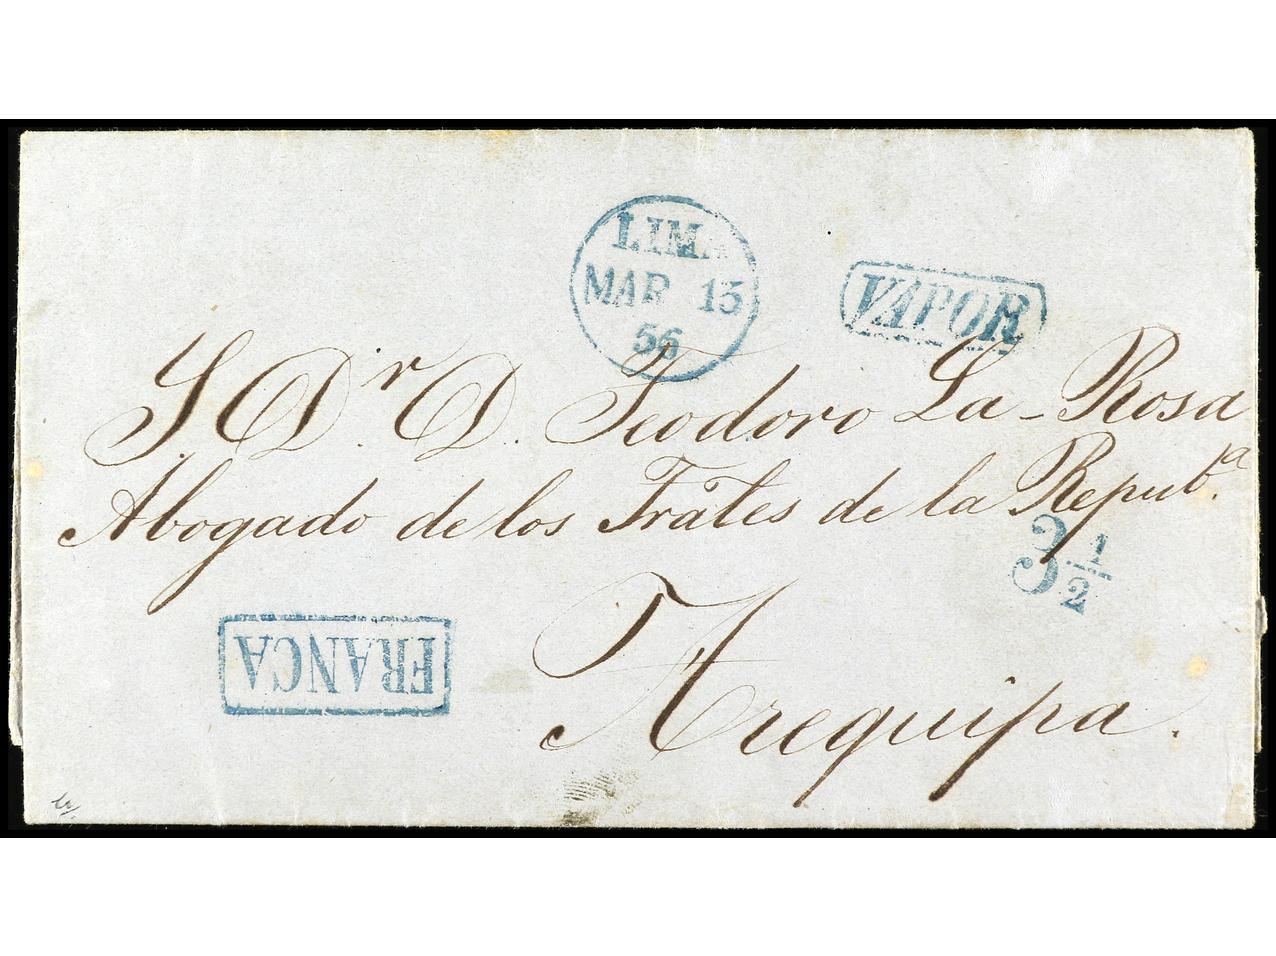 LIMA
MAR 13
56
VAPOR
S D.r D. Teodoro La-Rosa
Abogado de los Trãles de la Repub.a
3 1/2
FRANCA
Arequipa.